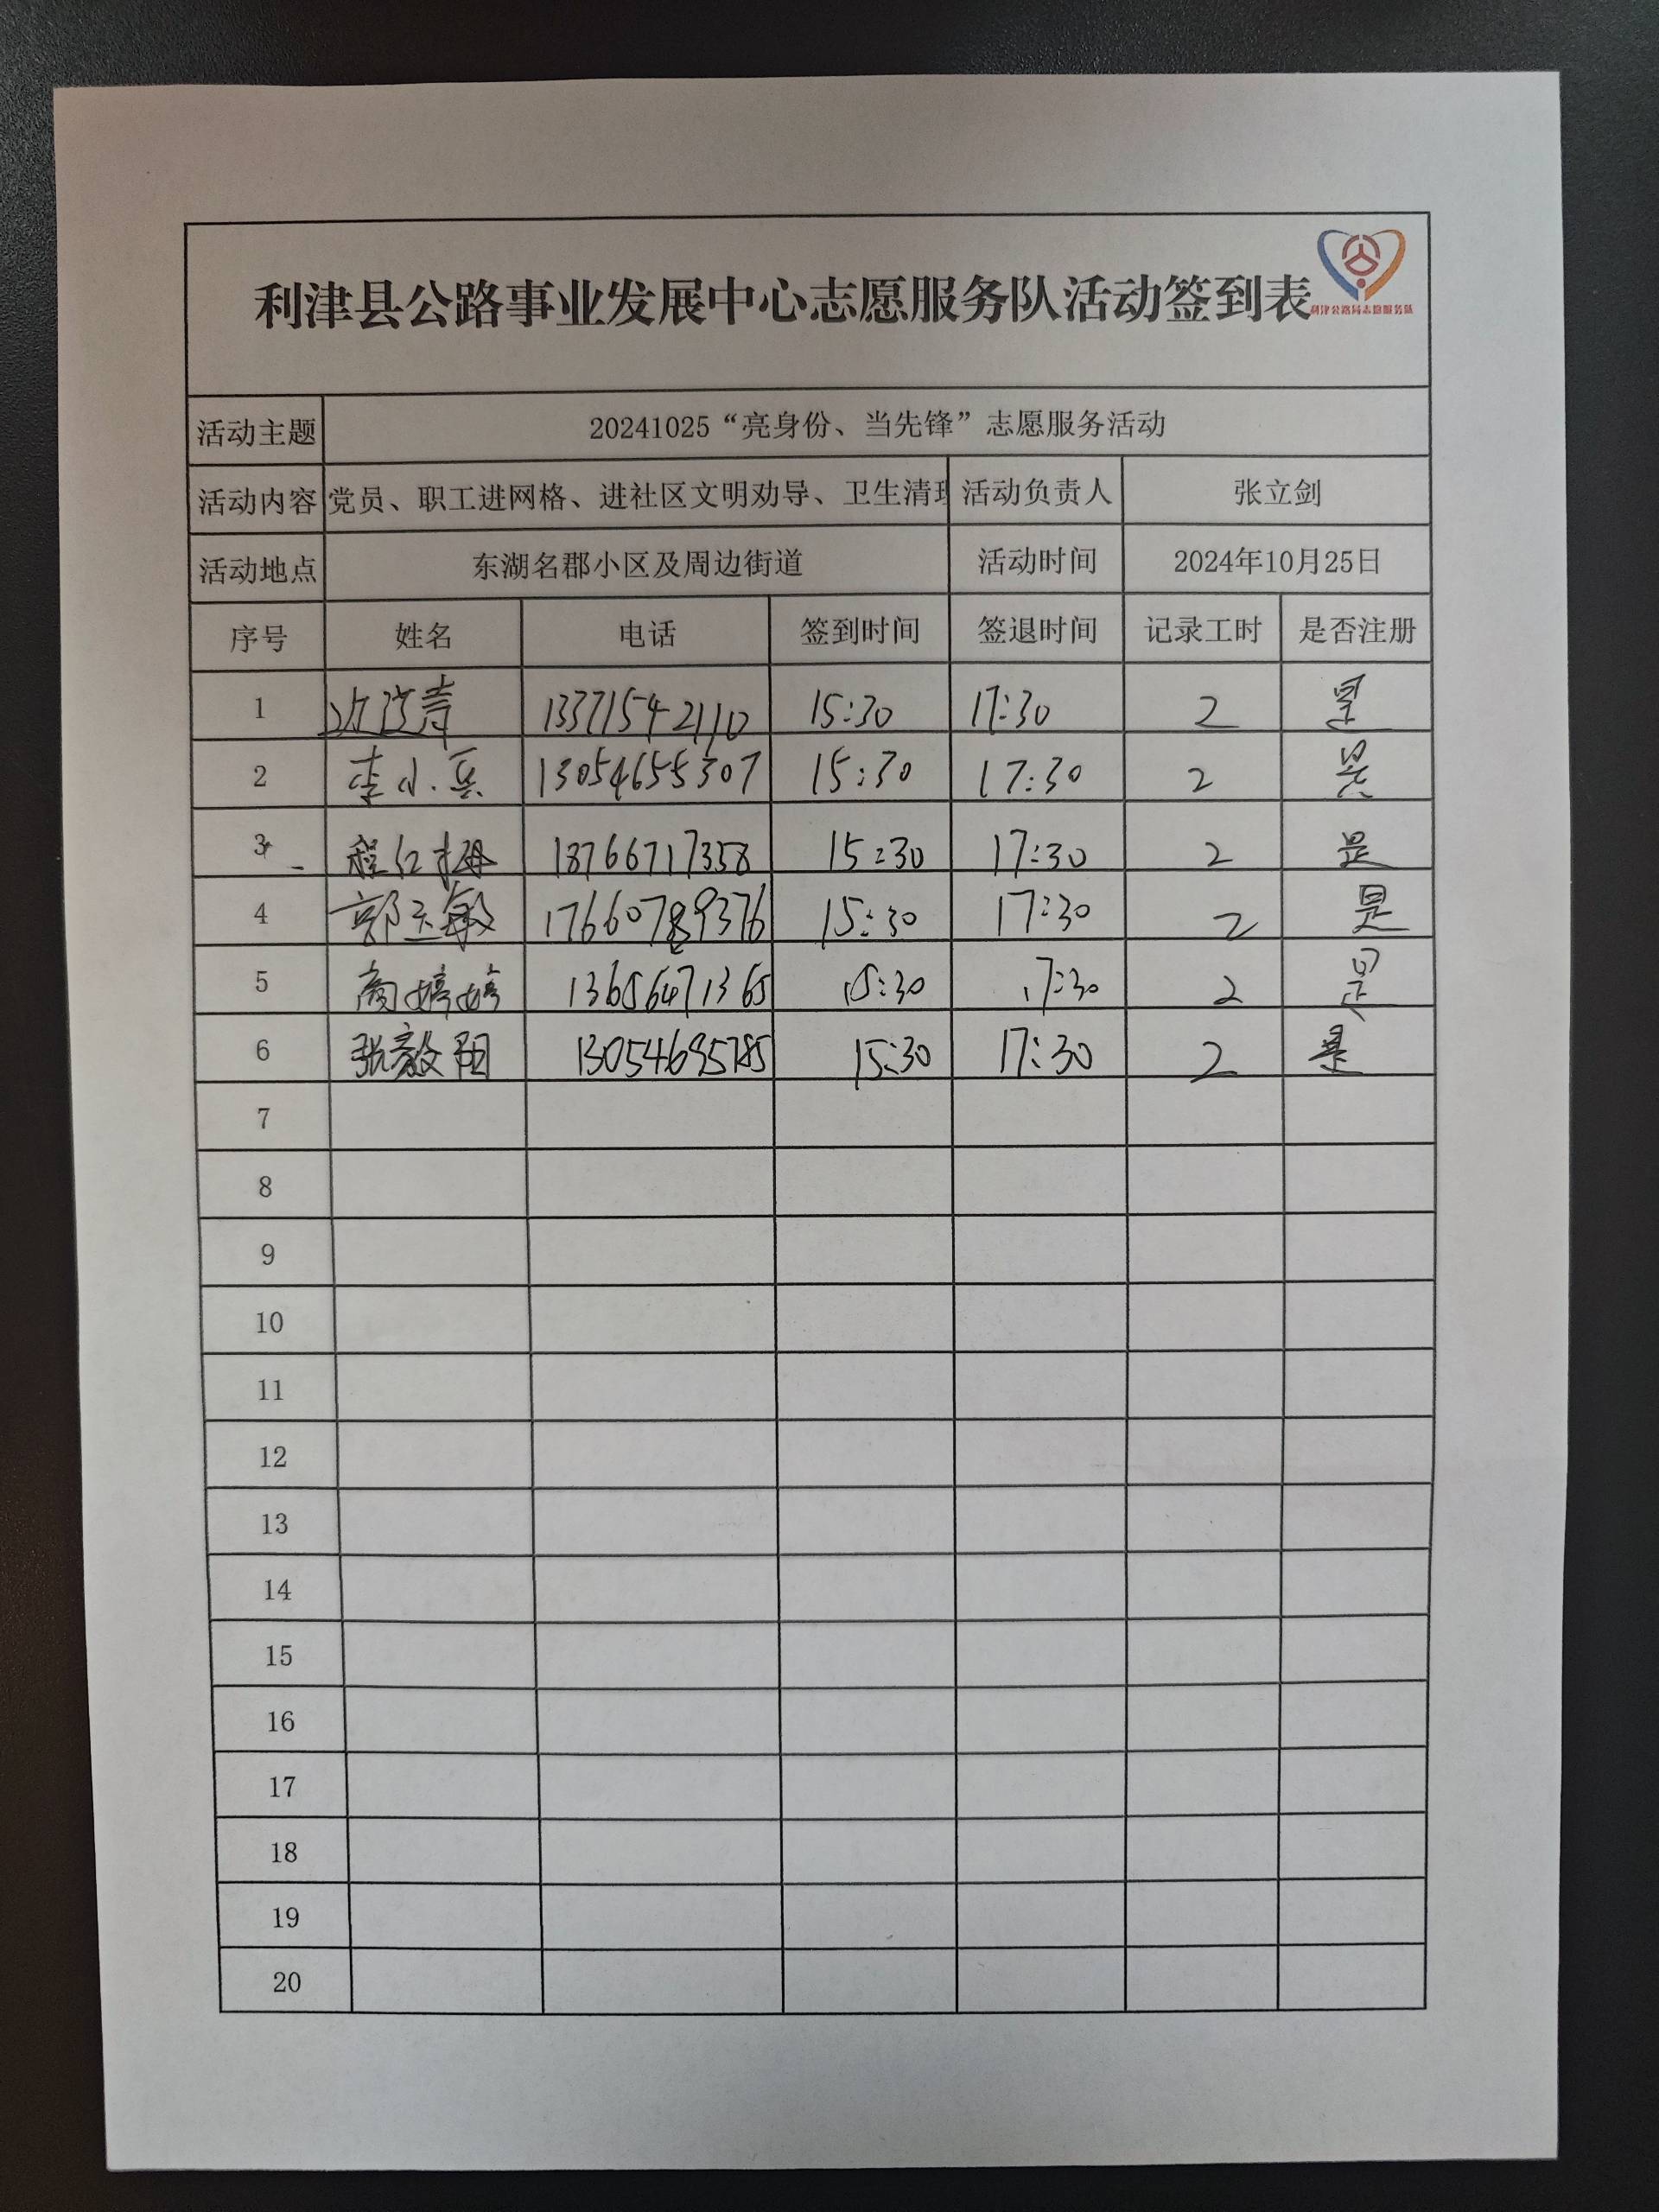 利津县公路事业发展中心志愿服务队活动签到表
利津公路局志愿服务队
活动主题 20241025“亮身份、当先锋”志愿服务活动
活动内容 党员、职工进网格、进社区文明劝导、卫生清理 活动负责人 张立剑
活动地点 东湖名郡小区及周边街道 活动时间 2024年10月25日
序号 姓名 电话 签到时间 签退时间 记录工时 是否注册
1 13371542110 15:30 17:30 2 是
2 李小兵 13054655307 15:30 17:30 2 是
3 程红梅 18766717358 15:30 17:30 2 是
4 郭玉敏 17660789376 15:30 17:30 2 是
5 商婷婷 13656471365 15:30 17:30 2 是
6 张毅阳 13054695785 15:30 17:30 2 是
7
8
9
10
11
12
13
14
15
16
17
18
19
20